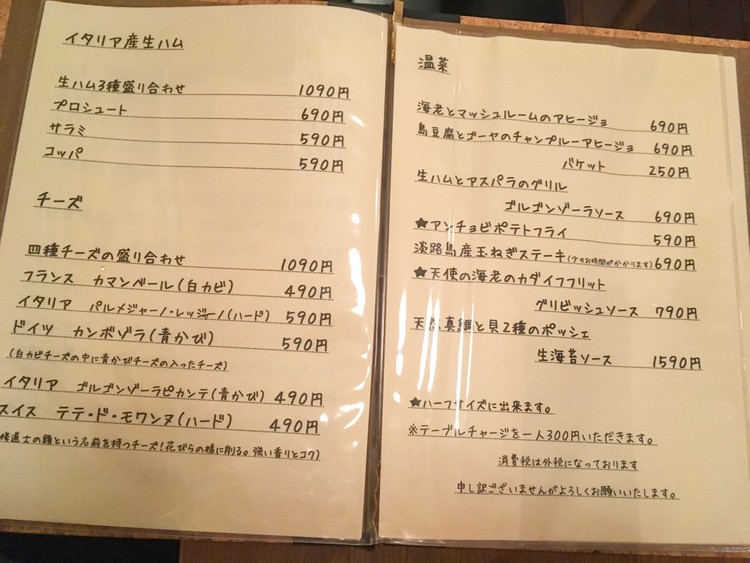 イタリア産生ハム
生ハム3種盛り合わせ 1090円
プロシュート 690円
サラミ 590円
コッパ 590円
チーズ
四種チーズの盛り合わせ 1090円
フランス カマンベール(白カビ) 490円
イタリア パルメジャーノ・レッジーノ(ハード) 590円
ドイツ カンボゾラ(青かび) 590円
(白カビチーズの中に青かびチーズの入ったチーズ)
イタリア ゴルゴンゾーラピカンテ(青かび) 490円
スイス テテ・ド・モワンヌ(ハード) 490円
修道士の頭という名前を持つチーズ!花びらの様に削る。強い香りとコク)
温菜
海老とマッシュルームのアヒージョ 690円
島豆腐とゴーヤのチャンプルーアヒージョ 690円
バケット 250円
生ハムとアスパラのグリル
ゴルゴンゾーラソース 690円
★アンチョビポテトフライ 590円
淡路島産玉ねぎステーキ(少々お時間がかかります) 690円
★天使の海老のカダイフフリット
グリビッシュソース 790円
天然真鯛と貝2種のポッシェ
生海苔ソース 1590円
★ハーフサイズに出来ます。
※テーブルチャージを一人300円いただきます。
消費税は外税になっております
申し訳ございませんがよろしくお願いいたします。